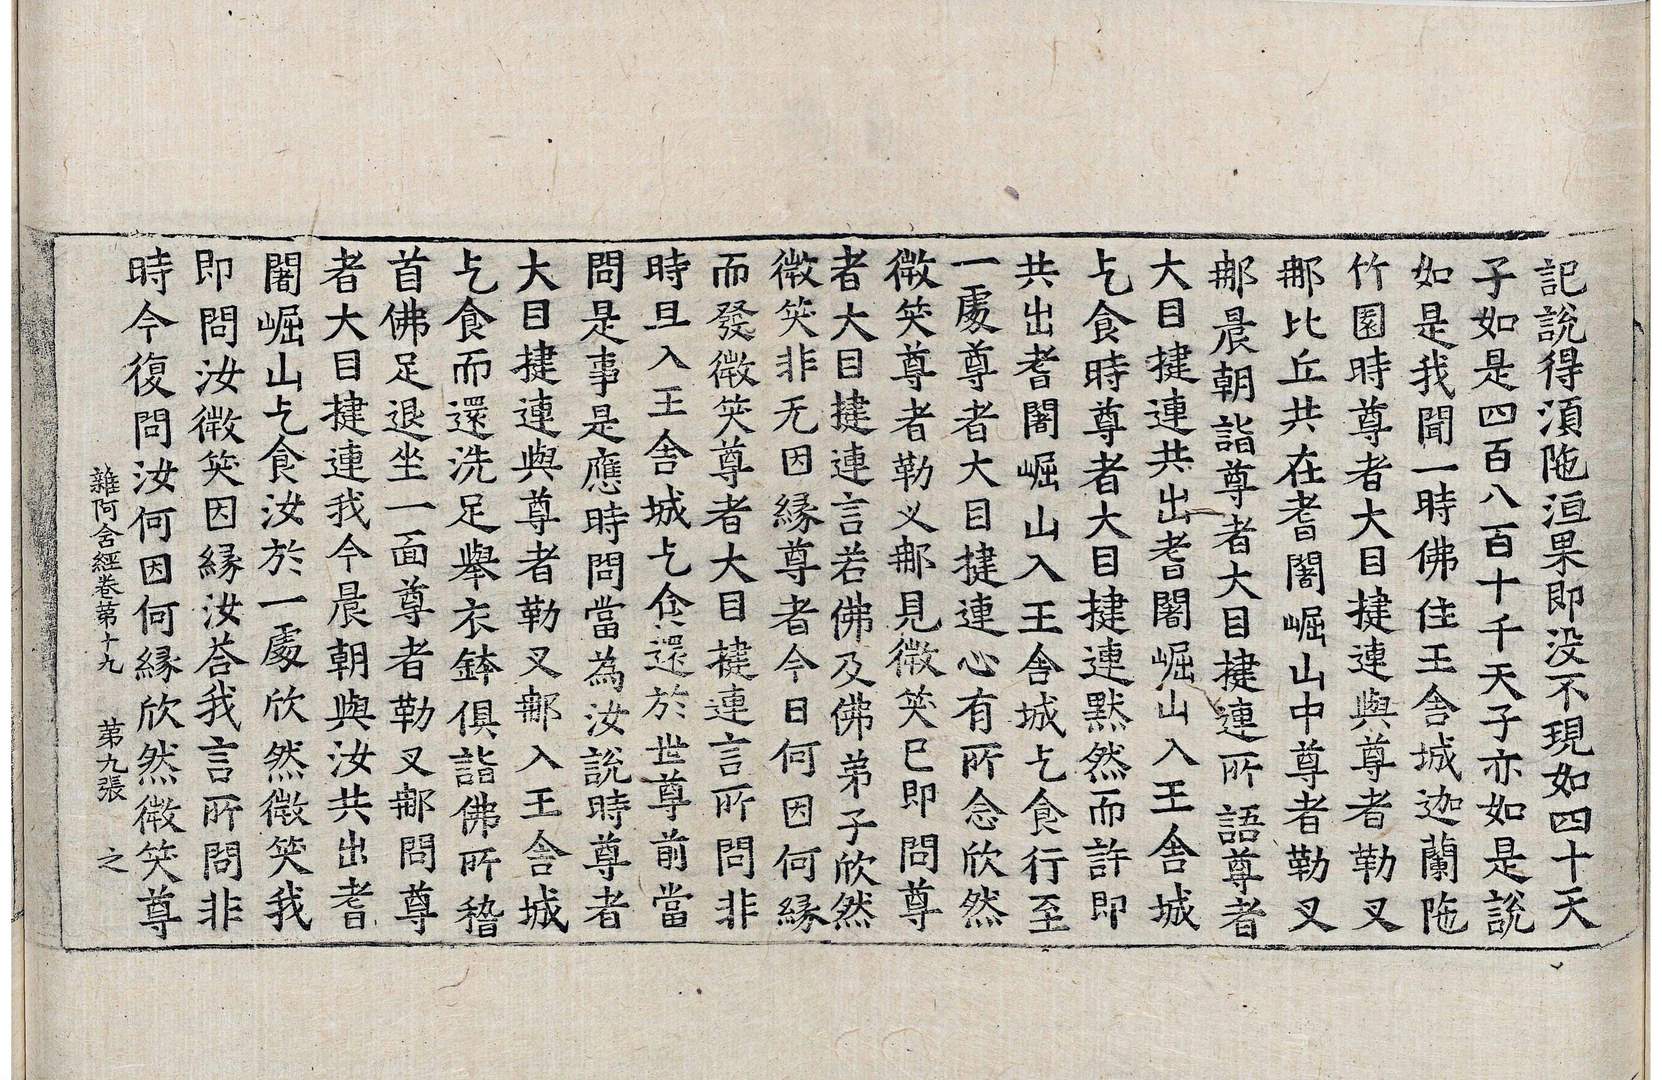 記說得湏陁洹果即没不現如四十天
子如是四百八百十千天子亦如是說
如是我聞一時佛住王舍城迦蘭陁
竹園時尊者大目揵連與尊者勒叉
那比丘共在耆闍崛山中尊者勒叉
那晨朝詣尊者大目揵連所語尊者
大目揵連共出耆闍崛山入王舍城
乞食時尊者大目揵連默然而許即
共出耆闍崛山入王舍城乞食行至
一處尊者大目揵連心有所念欣然
微笑尊者勒叉那見微笑已即問尊
者大目揵連言若佛及佛弟子欣然
微笑非无因縁尊者今日何因何縁
而發微笑尊者大目揵連言所問非
時且入王舍城乞食還於世尊前當
問是事是應時問當為汝說時尊者
大目揵連與尊者勒叉那入王舍城
乞食而還洗足舉衣鉢俱詣佛所稽
首佛足退坐一面尊者勒叉那問尊
者大目揵連我今晨朝與汝共出耆
闍崛山乞食汝於一處欣然微笑我
即問汝微笑因縁汝荅我言所問非
時今復問汝何因何縁欣然微笑尊
雜阿含經卷第十九　第九張　之